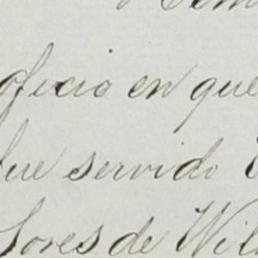 oficio en que
fue servido
Sores de Wil